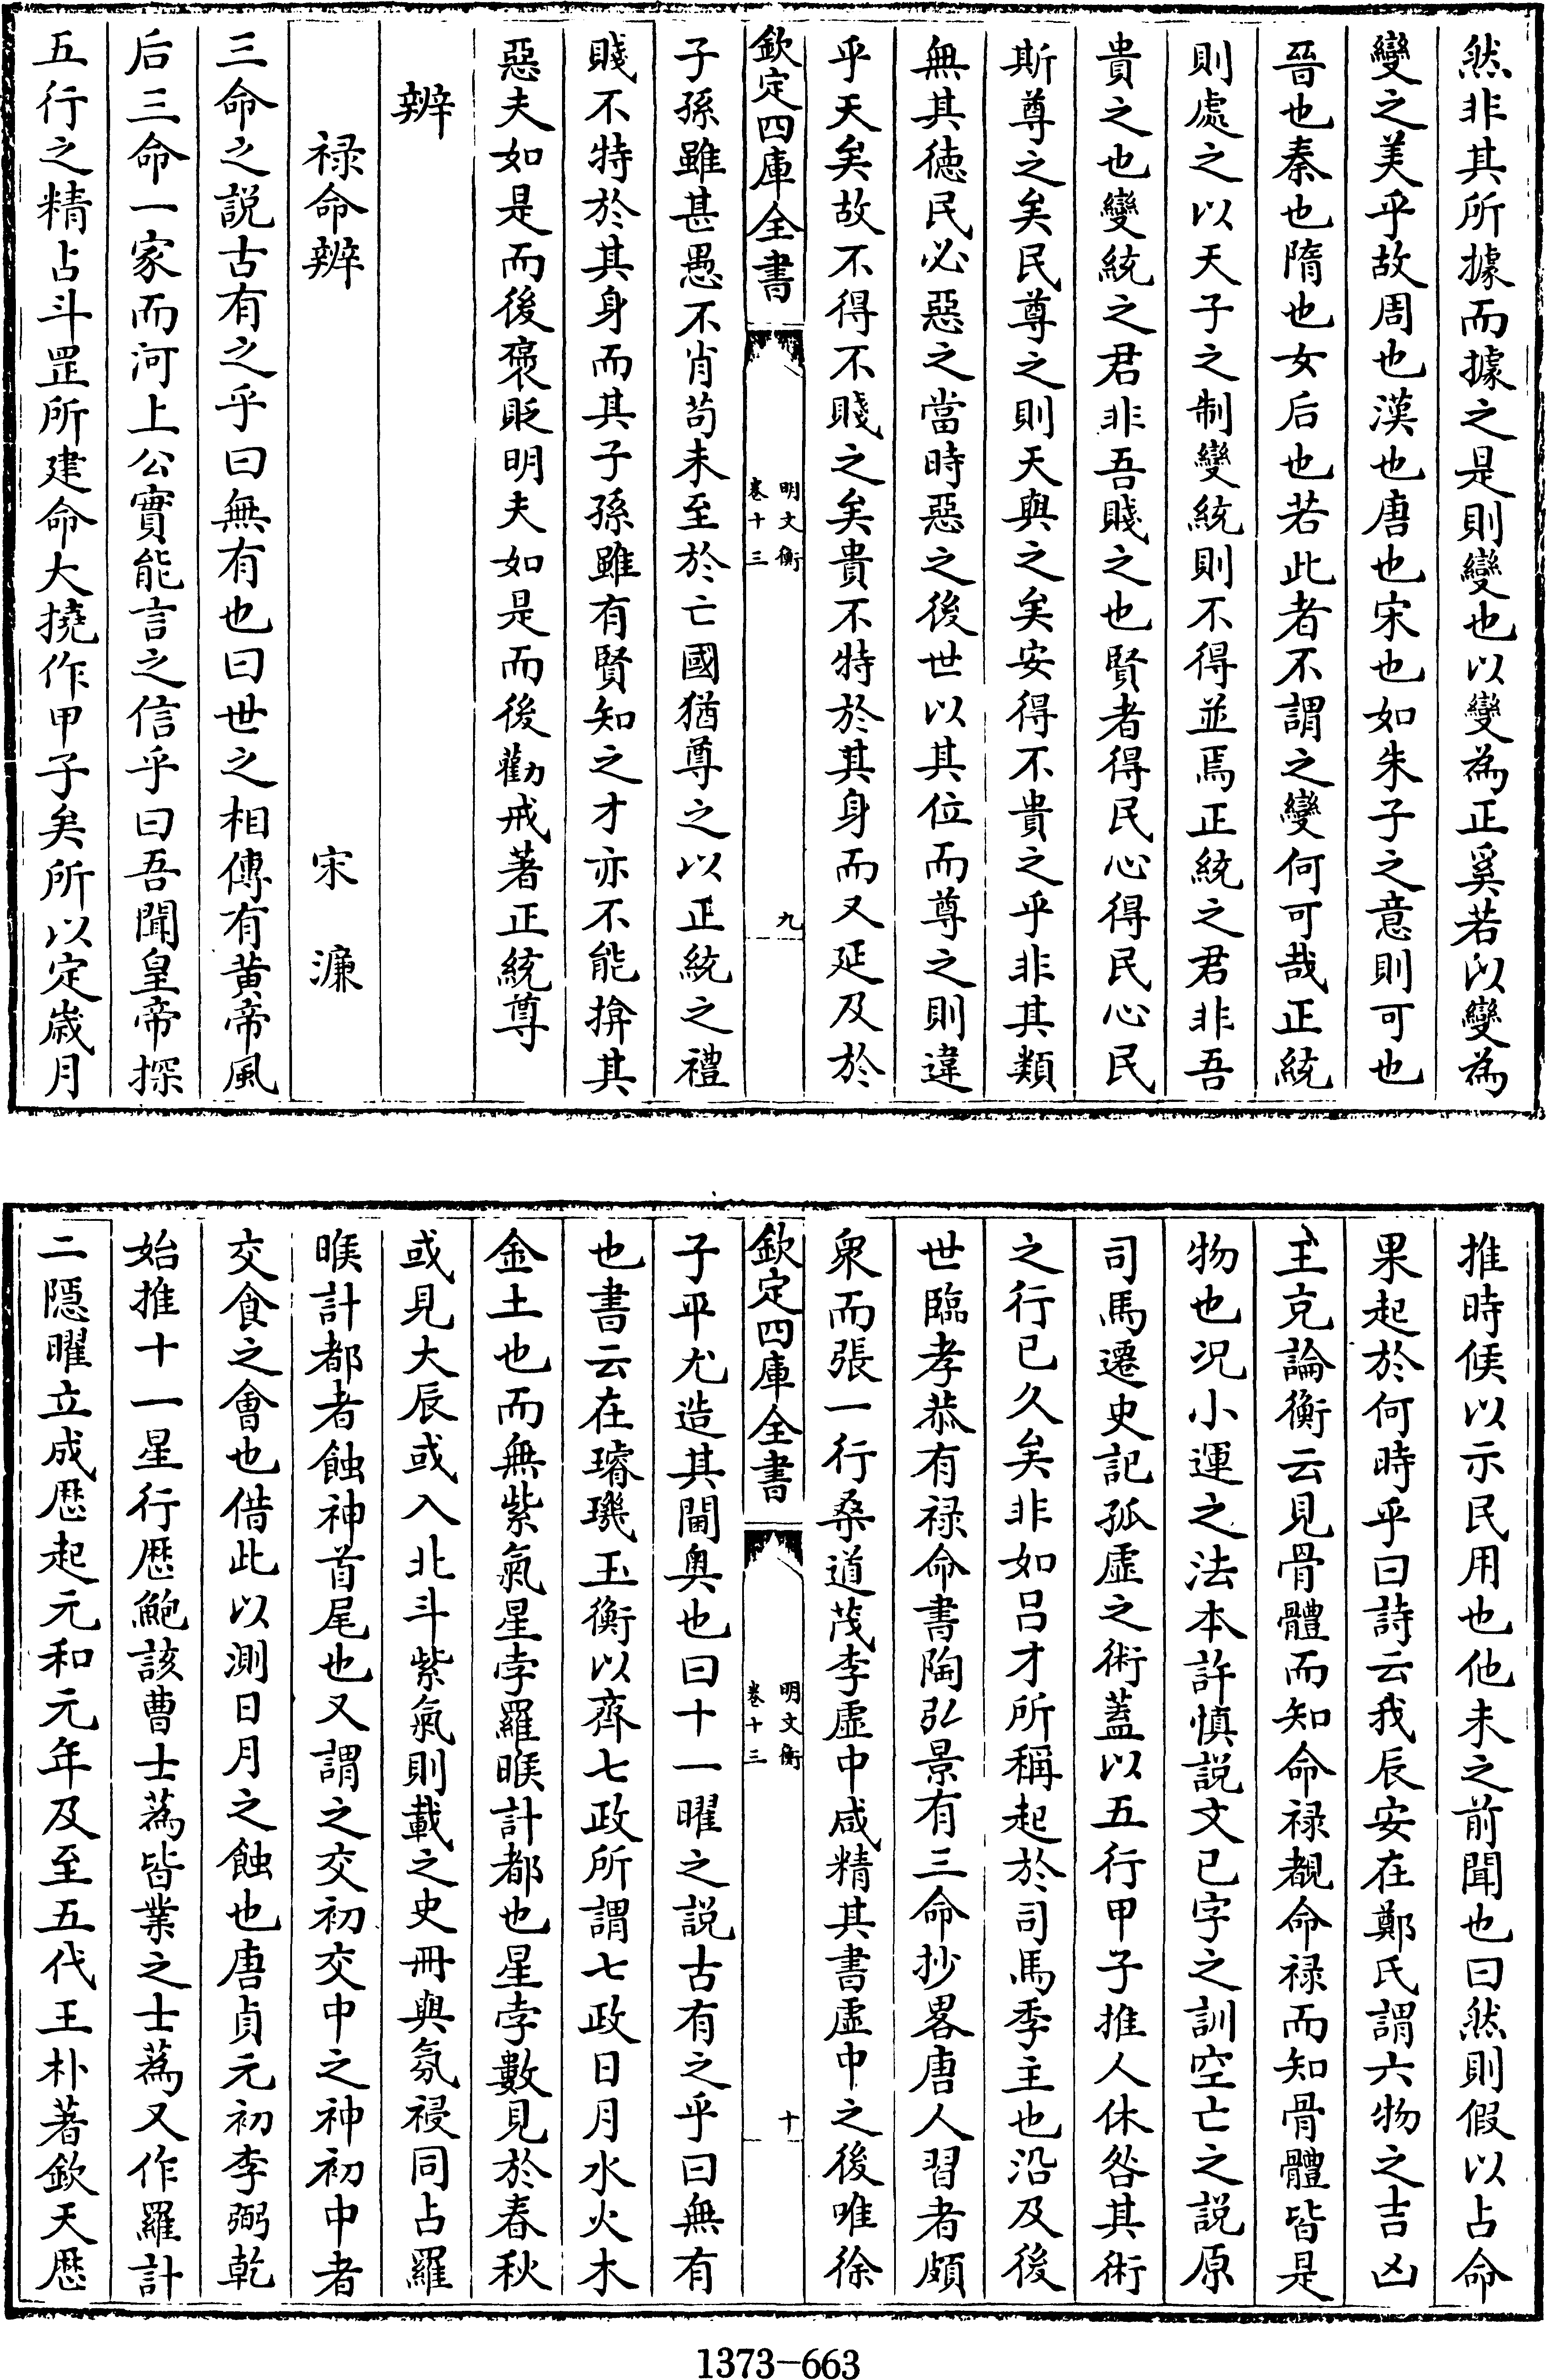 然非其所據而據之是則變也以變為正奚若以變為
變之美乎故周也漢也唐也宋也如朱子之意則可也
晉也秦也隋也女后也若此者不謂之變何可哉正統
則處之以天子之制變統則不得並焉正統之君非吾
貴之也變統之君非吾賤之也賢者得民心得民心民
斯尊之矣民尊之則天與之矣安得不貴之乎非其類
無其徳民必惡之當時惡之後世以其位而尊之則違
乎天矣故不得不賤之矣貴不特於其身而又延及於
欽定四庫全書
明文衡
卷十三
九
子孫雖甚愚不肖苟未至於亡國猶尊之以正統之禮
賤不特於其身而其子孫雖有賢知之才亦不能揜其
惡夫如是而後褒貶明夫如是而後勸戒著正統尊
辨
禄命辨
宋濂
三命之説古有之乎曰無有也曰世之相傳有黄帝風
后三命一家而河上公實能言之信乎曰吾聞皇帝探
五行之精占斗罡所建命大撓作甲子矣所以定歲月
推時候以示民用也他未之前聞也曰然則假以占命
果起於何時乎曰詩云我辰安在鄭氏謂六物之吉凶
王充論衡云見骨體而知命禄覩命禄而知骨體皆是
物也况小運之法本許慎説文巳字之訓空亡之説原
司馬遷史記孤虛之術蓋以五行甲子推人休咎其術
之行已久矣非如吕才所稱起於司馬季主也沿及後
世臨孝恭有禄命書陶弘景有三命抄畧唐人習者頗
衆而張一行桑道茂李虛中咸精其書虛中之後唯徐
欽定四庫全書
明文衡
卷十三
十
子平尤造其閫奥也曰十一曜之説古有之乎曰無有
也書云在璿璣玉衡以齊七政所謂七政日月水火木
金土也而無紫氣星孛羅睺計都也星孛數見於春秋
或見大辰或入北斗紫氣則載之史冊與氛祲同占羅
睺計都者蝕神首尾也又謂之交初交中之神初中者
交食之會也借此以測日月之蝕也唐貞元初李弼乾
始推十一星行厯鮑該曹士蔿皆業之士蔿又作羅計
二隱曜立成厯起元和元年及至五代王朴著欽天厯
1373-663